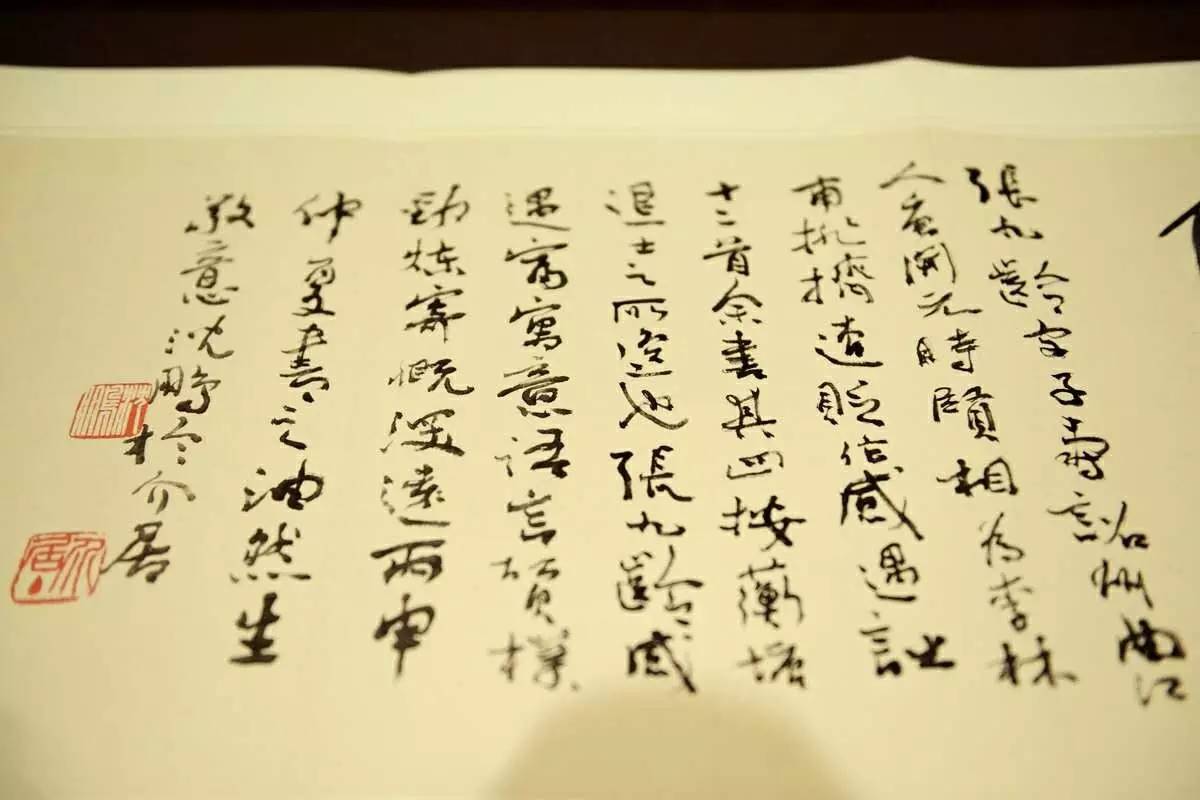 張九齡字子壽韶州曲江
人唐開元時賢相為李林
甫排擠遭貶作感遇詩
十二首余書其四按蘅塘
退士之所選也張九齡感
遇富寓意語言質樸
勁炼寄慨深遠丙申
仲夏書之油然生
敬意沈鵬於介居
沈鵬
介居